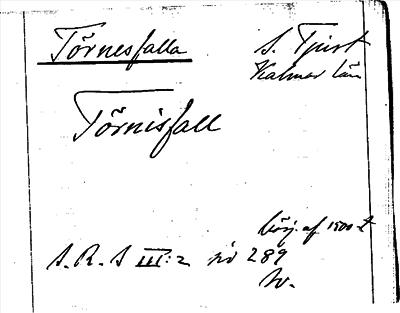 Törnesfalla
S. Tjust
Kalmar län
Törnisfall
börj. af 1500-t
S. R. S III:2 nr 289